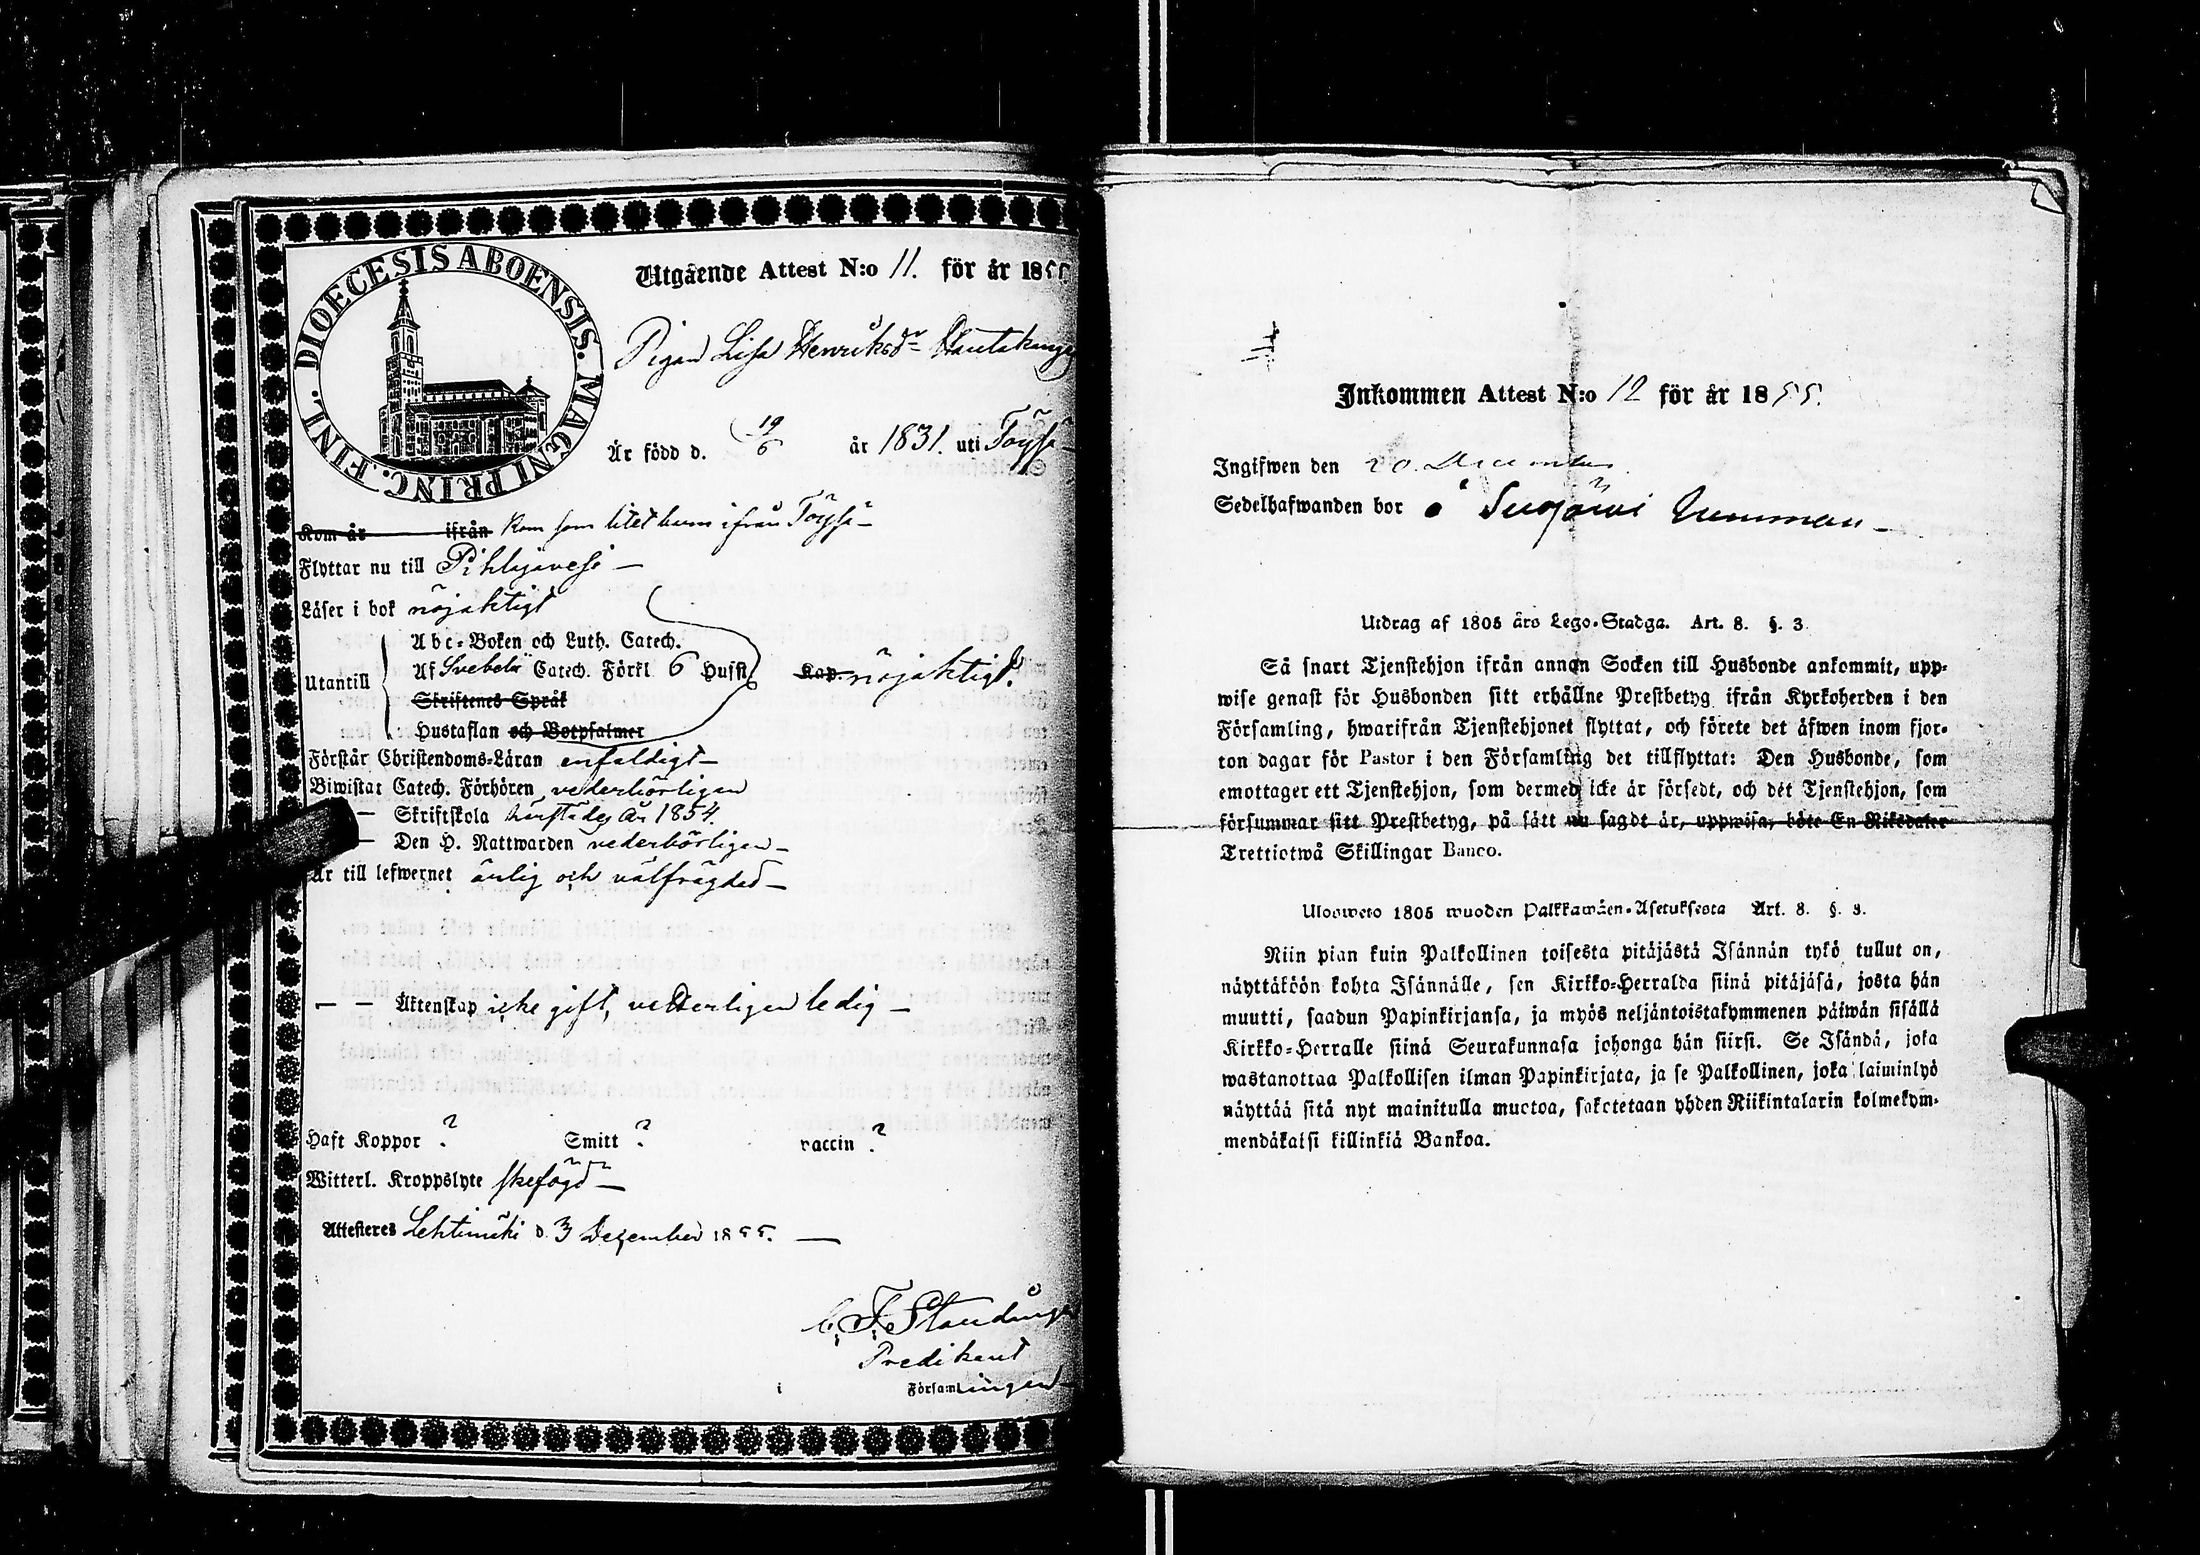 DIOECESIS ABOENSIS. MAGNI PRINC. FINL.
Utgående Attest N:o 11. för år 1855
Pigan Lisa Henriksdr Hautakangas
Är född d. 19/6 år 1831. uti Töysä
Kom år ifrån kom som litet barn ifrån Töysä
Flyttar nu till Pihlajavesi
Läser i bok nöjaktigt
Abc-Boken och Luth. Catech.
Utantill Af Svebelii Catech. Förkl. 6 Hufst. Kap. nöjaktigt.
Skriftenes Språk
Hustaflan och Botpsalmer
Förstår Christendoms-Läran enfaldigt
Biwistat Catech. Förhören vederbörligen
— Skriftskola år 1854.
— Den H. Nattwarden vederbörligen
Är till lefwernet ärlig och välfrägdad
— — Äktenskap icke gift, vetterligen ledig
Haft Koppor ? Smitt ? vaccin ?
Witterl. Kroppslyte skefögd
Attesteres Lehtimäki d. 3 December 1855.
C. F. Standings
Predikant
i Församlingen
Inkommen Attest N:o 12 för år 1855.
Ingifwen den 20 December
Sedelhafwanden bor å
Utdrag af 1805 års Lego-Stadga. Art. 8. §. 3.
Så snart Tjenstehjon ifrån annan Socken till Husbonde ankommit, upp-
wise genast för Husbonden sitt erhållne Prestbetyg ifrån Kyrkoherden i den
Församling, hwarifrån Tjenstehjonet flyttat, och förete det äfwen inom fjor-
ton dagar för Pastor i den Församling det tillflyttat: Den Husbonde, som
emottager ett Tjenstehjon, som dermed icke är försedt, och det Tjenstehjon, som
försummar sitt Prestbetyg, på sätt nu sagdt är, uppwisa, böte En Riksdaler
Trettiotwå Skillingar Banco.
Ulosweto 1805 wuoden Palkkawäen-Asetuksesta Art. 8. §. 3.
Niin pian kuin Palkollinen toisesta pitäjästä Isännän tykö tullut on,
näyttäköön kohta Isännälle, sen Kirkko-Herralda siinä pitäjäsä, josta hän
muutti, saadun Papinkirjansa, ja myös neljäntoistakymmenen päiwän sisällä
Kirkko-Herralle siinä Seurakunnasa johonga hän siirsi. Se Isändä, joka
wastanottaa Palkollisen ilman Papinkirjata, ja se Palkollinen, joka laiminlyö
näyttää sitä nyt mainitulla muotoa, sakotetaan yhden Riikintalarin kolmekym-
mendäkaksi killinkiä Bankoa.